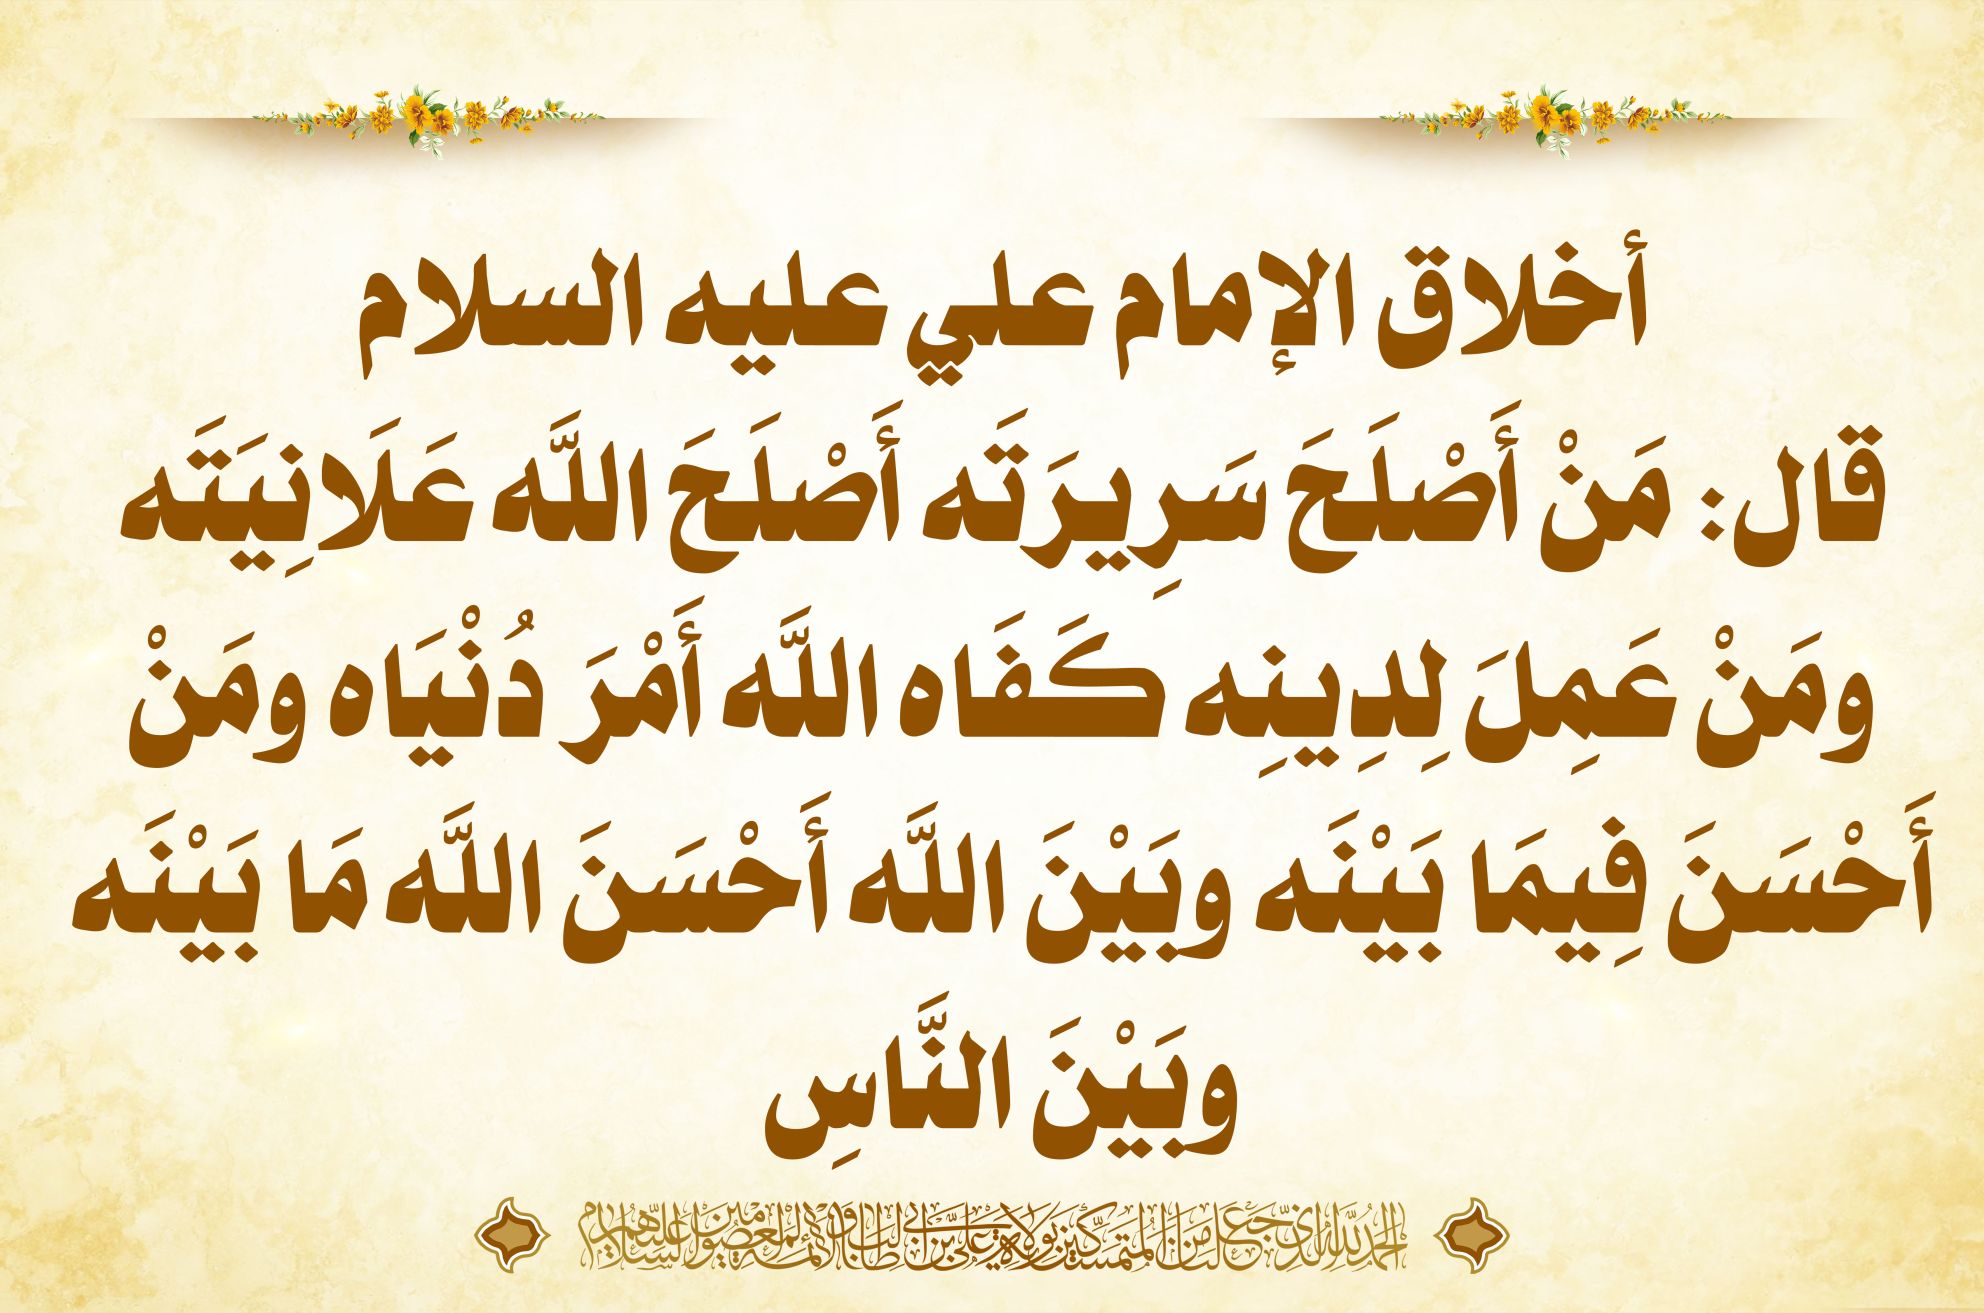 أخلاق الإمام علي عليه السلام
قال: مَنْ أَصْلَحَ سَرِيرَتَه أَصْلَحَ اللَّه عَلَانِيَتَه
ومَنْ عَمِلَ لِدِينِه كَفَاه اللَّه أَمْرَ دُنْيَاه ومَنْ
أَحْسَنَ فِيمَا بَيْنَه وبَيْنَ اللَّه أَحْسَنَ اللَّه مَا بَيْنَه
وبَيْنَ النَّاسِ
الحمد لله الذي جعلنا من المتمسكين بولاية علي بن أبي طالب والأئمة المعصومين عليهم السلام